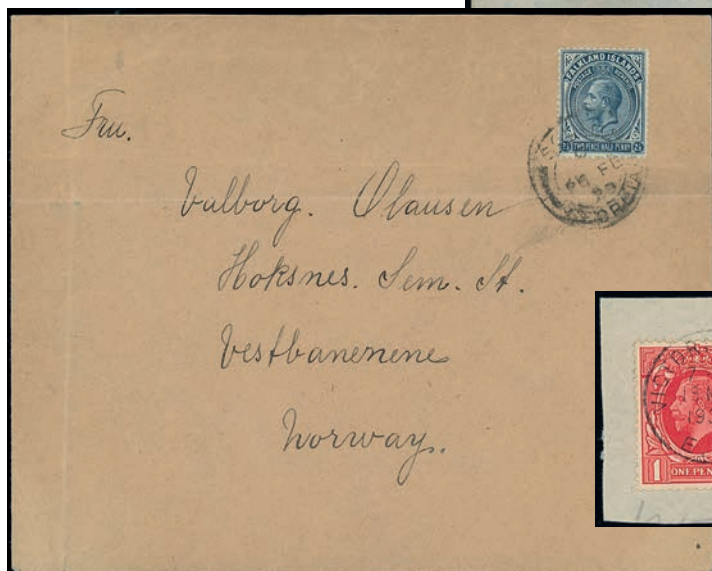 FALKLAND ISLANDS
POSTAGE REVENUE
2½ TWO PENCE HALF PENNY 2½
Fru.
Valborg. Olausen
Hoksnes. Sem. St.
Vestbanenene
Norway.
1 ONE PEN